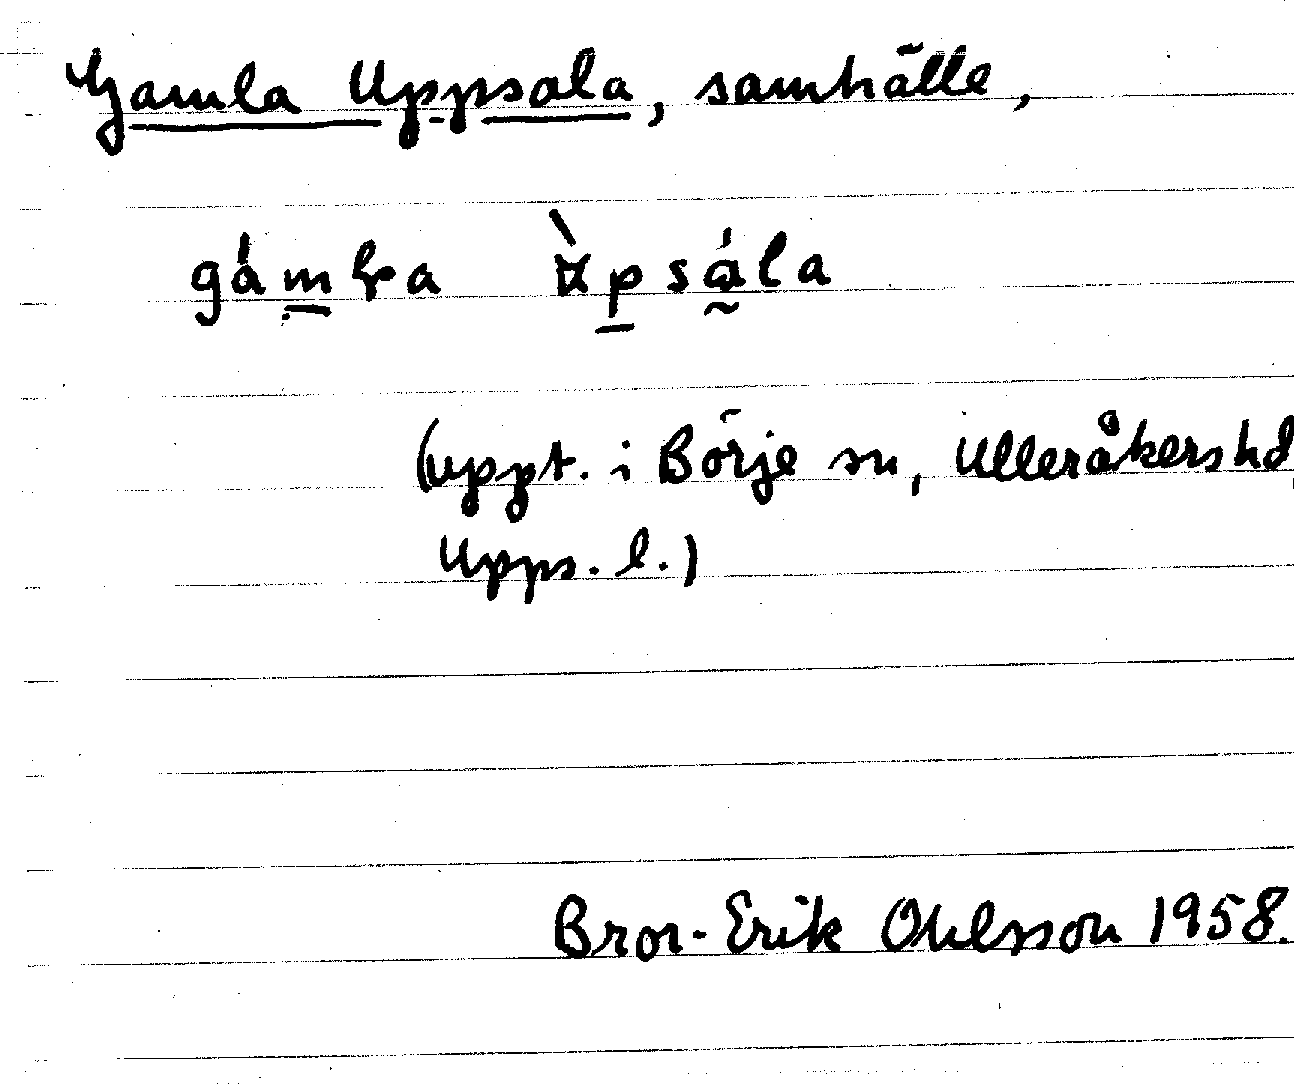 Gamla Uppsala, samhälle,
(uppt. i Börje sn, Ulleråkers hd
Upps. l.)
Bror-Erik Ohlsson 1958.